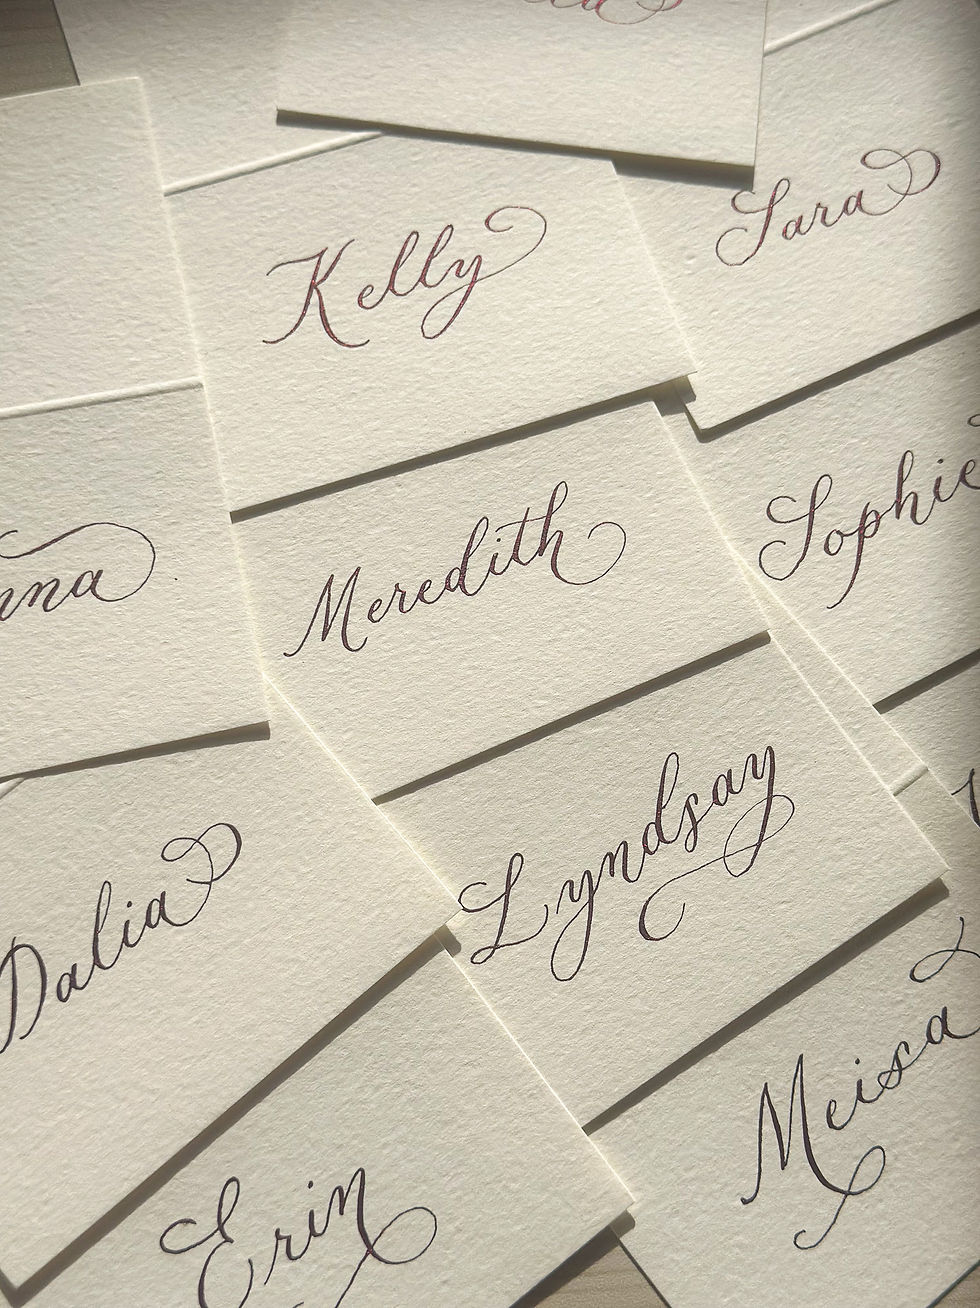 Sara
Kelly
Sophie
Meredith
Lyndsay
Dalia
Meisa
Erin